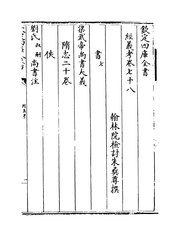 欽定四庫全書
經義考卷七十八
翰林院檢討朱彝尊撰
書七
梁武帝尚書大義
隋志二十卷
佚
劉氏叔嗣尚書注